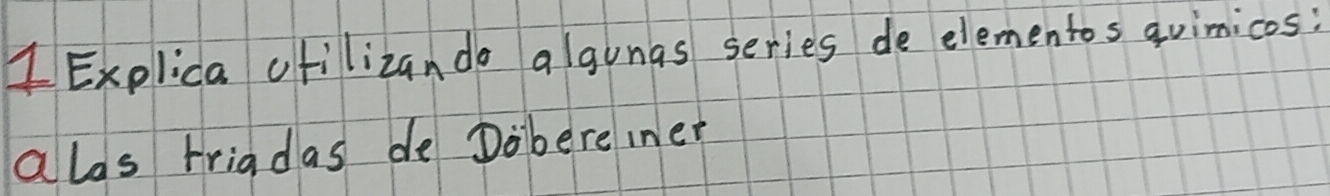 1 Explica utilizando algunas series de elementos quimicos:
a las triadas de Döbereiner